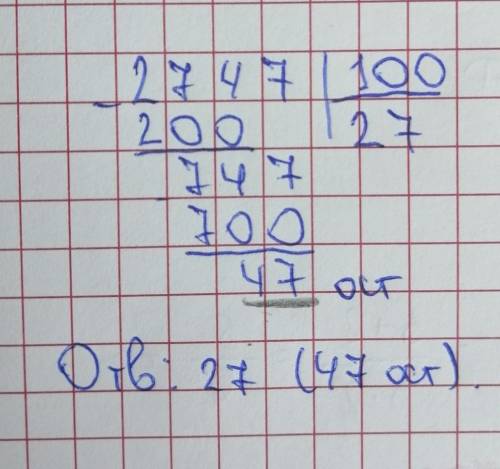 - 2747 | 100
200 | 27
- 747
700
47 ост
Отв: 27 (47 ост).